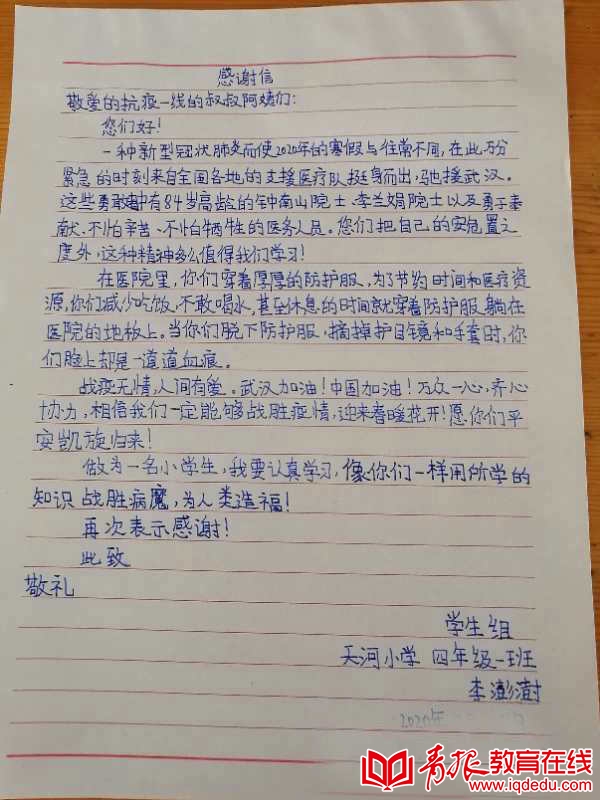 感谢信
敬爱的抗疫一线的叔叔阿姨们:
您们好!
一种新型冠状肺炎而使2020年的寒假与往常不同,在此万分
紧急的时刻来自全国各地的支援医疗队挺身而出,驰援武汉。
这些勇敢中有84岁高龄的钟南山院士、李兰娟院士以及勇于奉
献、不怕辛苦、不怕牺牲的医务人员。您们把自己的安危置之
度外,这种精神多么值得我们学习!
在医院里,你们穿着厚厚的防护服,为了节约时间和医疗资
源,你们减少吃饭,不敢喝水,甚至休息的时间就穿着防护服躺在
医院的地板上。当你们脱下防护服,摘掉护目镜和手套时,你
们脸上却是一道道血痕。
战疫无情,人间有爱。武汉加油!中国加油!万众一心,齐心
协力,相信我们一定能够战胜疫情,迎来春暖花开!愿你们平
安凯旋归来!
做为一名小学生,我要认真学习,像你们一样用所学的
知识战胜病魔,为人类造福!
再次表示感谢!
此致
敬礼
学生组
天河小学 四年级一班
李澎澍
2020年
青报教育在线
www.iqdedu.com